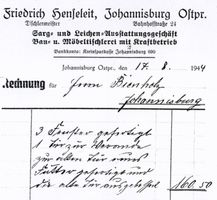 Friedrich Henseleit, Johannisburg Ostpr.
Tischlermeister Bahnhofstraße 24
Sarg- und Leichen-Ausstattungsgeschäft
Bau- u. Möbeltischlerei mit Kraftbetrieb
Bankkonto: Kreissparkasse Johannisburg 600
Johannisburg Ostpr., den 17. 8. 1944
Rechnung für Herrn
Johannisburg
3 Fenster gefertigt
1 Tür zur Veranda
zur alten Tür
Futter gefertigt und
die alte Tür 160.50